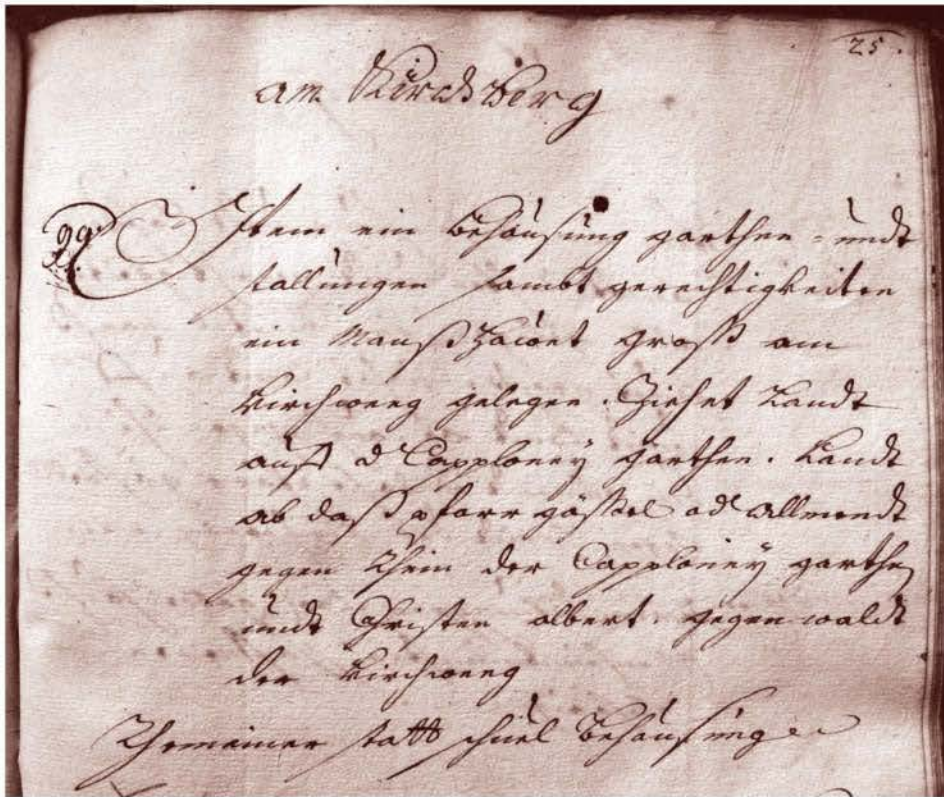 25.
am Kirchberg
99
Item ein Behausung garthen - undt
stallungen sambt gerechtigkeiten
ein Manß Hauet groß am
Kirchweeg gelegen. Ziehet Landt
auff d Capploney garthen. Landt
ab daß pfarr gäßel od allmendt
gegen Rhein der Capploney garthen
undt Christen albert. gegen waldt
der Kirchweeg
Gemeiner statt schuel Behausung